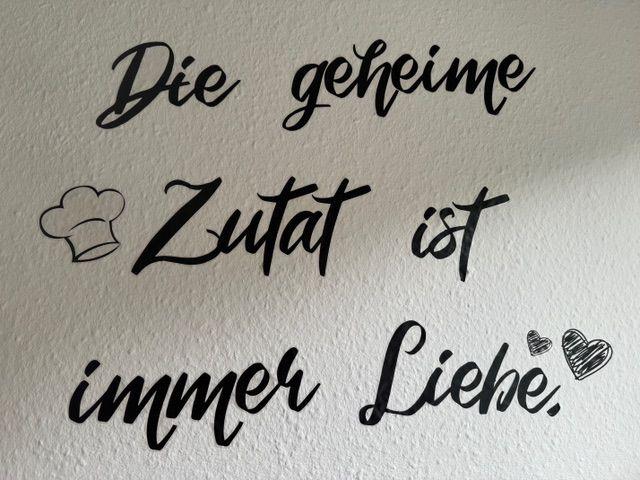 Die geheime
Zutat ist
immer Liebe.